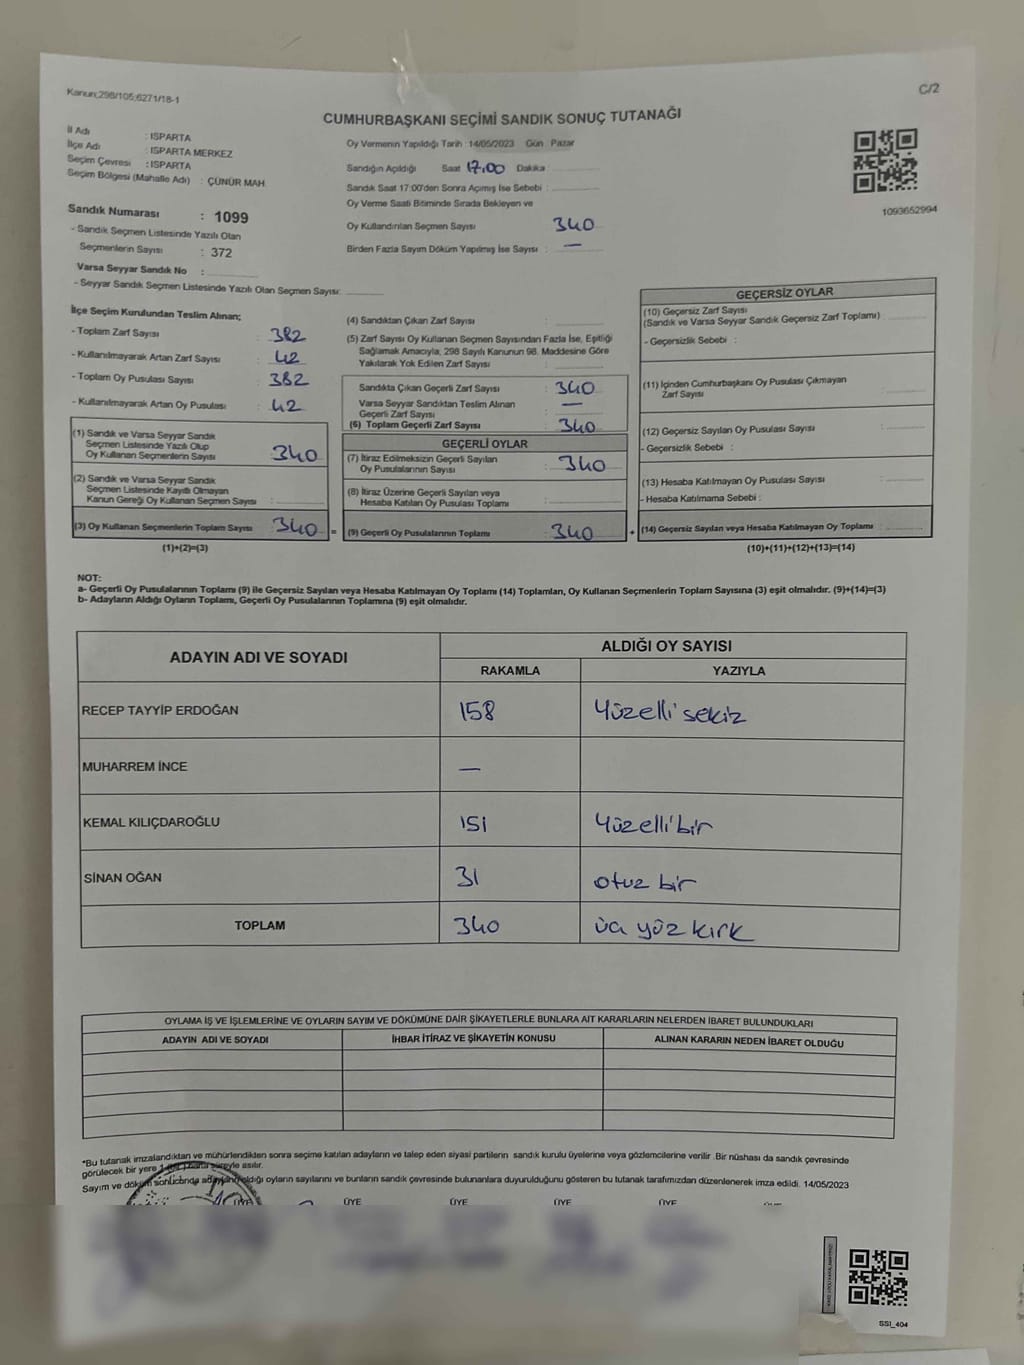 Kanun;298/105;6271/18-1
C/2
CUMHURBAŞKANI SEÇİMİ SANDIK SONUÇ TUTANAĞI
İl Adı : ISPARTA
İlçe Adı : ISPARTA MERKEZ
Seçim Çevresi : ISPARTA
Seçim Bölgesi (Mahalle Adı) : ÇÜNÜR MAH.
Sandık Numarası : 1099
- Sandık Seçmen Listesinde Yazılı Olan
Seçmenlerin Sayısı : 372
Varsa Seyyar Sandık No :
- Seyyar Sandık Seçmen Listesinde Yazılı Olan Seçmen Sayısı:
Oy Vermenin Yapıldığı Tarih : 14/05/2023 Gün : Pazar
Sandığın Açıldığı Saat 17.00 Dakika :
Sandık Saat 17:00'den Sonra Açımış İse Sebebi :
Oy Verme Saati Bitiminde Sırada Bekleyen ve
Oy Kullandırılan Seçmen Sayısı 340
Birden Fazla Sayım Döküm Yapılmış İse Sayısı : —
1093652994
İlçe Seçim Kurulundan Teslim Alınan;
- Toplam Zarf Sayısı : 382
- Kullanılmayarak Artan Zarf Sayısı : 42
- Toplam Oy Pusulası Sayısı : 382
- Kullanılmayarak Artan Oy Pusulası : 42
(1) Sandık ve Varsa Seyyar Sandık
Seçmen Listesinde Yazılı Olup
Oy Kullanan Seçmenlerin Sayısı : 340
(2) Sandık ve Varsa Seyyar Sandık
Seçmen Listesinde Kayıtlı Olmayan
Kanun Gereği Oy Kullanan Seçmen Sayısı :
(3) Oy Kullanan Seçmenlerin Toplam Sayısı : 340 =
(1)+(2)=(3)
(4) Sandıktan Çıkan Zarf Sayısı :
(5) Zarf Sayısı Oy Kullanan Seçmen Sayısından Fazla İse, Eşitliği
Sağlamak Amacıyla; 298 Sayılı Kanunun 98. Maddesine Göre
Yakılarak Yok Edilen Zarf Sayısı :
Sandıkta Çıkan Geçerli Zarf Sayısı : 340
Varsa Seyyar Sandıktan Teslim Alınan —
Geçerli Zarf Sayısı :
(6) Toplam Geçerli Zarf Sayısı : 340
GEÇERLİ OYLAR
(7) İtiraz Edilmeksizin Geçerli Sayılan
Oy Pusulalarının Sayısı : 340
(8) İtiraz Üzerine Geçerli Sayılan veya
Hesaba Katılan Oy Pusulası Toplamı :
(9) Geçerli Oy Pusulalarının Toplamı : 340 +
GEÇERSİZ OYLAR
(10) Geçersiz Zarf Sayısı
(Sandık ve Varsa Seyyar Sandık Geçersiz Zarf Toplamı) :
- Geçersizlik Sebebi :
(11) İçinden Cumhurbaşkanı Oy Pusulası Çıkmayan
Zarf Sayısı :
(12) Geçersiz Sayılan Oy Pusulası Sayısı :
- Geçersizlik Sebebi :
(13) Hesaba Katılmayan Oy Pusulası Sayısı :
- Hesaba Katılmama Sebebi :
(14) Geçersiz Sayılan veya Hesaba Katılmayan Oy Toplamı :
(10)+(11)+(12)+(13)=(14)
NOT:
a- Geçerli Oy Pusulalarının Toplamı (9) ile Geçersiz Sayılan veya Hesaba Katılmayan Oy Toplamı (14) Toplamları, Oy Kullanan Seçmenlerin Toplam Sayısına (3) eşit olmalıdır. (9)+(14)=(3)
b- Adayların Aldığı Oyların Toplamı, Geçerli Oy Pusulalarının Toplamına (9) eşit olmalıdır.
ADAYIN ADI VE SOYADI
ALDIĞI OY SAYISI
RAKAMLA YAZIYLA
RECEP TAYYİP ERDOĞAN 158 Yüzelli sekiz
MUHARREM İNCE —
KEMAL KILIÇDAROĞLU 151 Yüzelli bir
SİNAN OĞAN 31 otuz bir
TOPLAM 340 üç yüz kırk
OYLAMA İŞ VE İŞLEMLERİNE VE OYLARIN SAYIM VE DÖKÜMÜNE DAİR ŞİKAYETLERLE BUNLARA AİT KARARLARIN NELERDEN İBARET BULUNDUKLARI
ADAYIN ADI VE SOYADI İHBAR İTİRAZ VE ŞİKAYETİN KONUSU ALINAN KARARIN NEDEN İBARET OLDUĞU
*Bu tutanak imzalandıktan ve mühürlendikten sonra seçime katılan adayların ve talep eden siyasi partilerin sandık kurulu üyelerine veya gözlemcilerine verilir .Bir nüshası da sandık çevresinde
görülecek bir yere süreyle asılır.
Sayım ve döküm sonucunda adayların aldığı oyların sayılarını ve bunların sandık çevresinde bulunanlara duyurulduğunu gösteren bu tutanak tarafımızdan düzenlenerek imza edildi. 14/05/2023
ÜYE ÜYE ÜYE ÜYE ÜYE
SSI_404